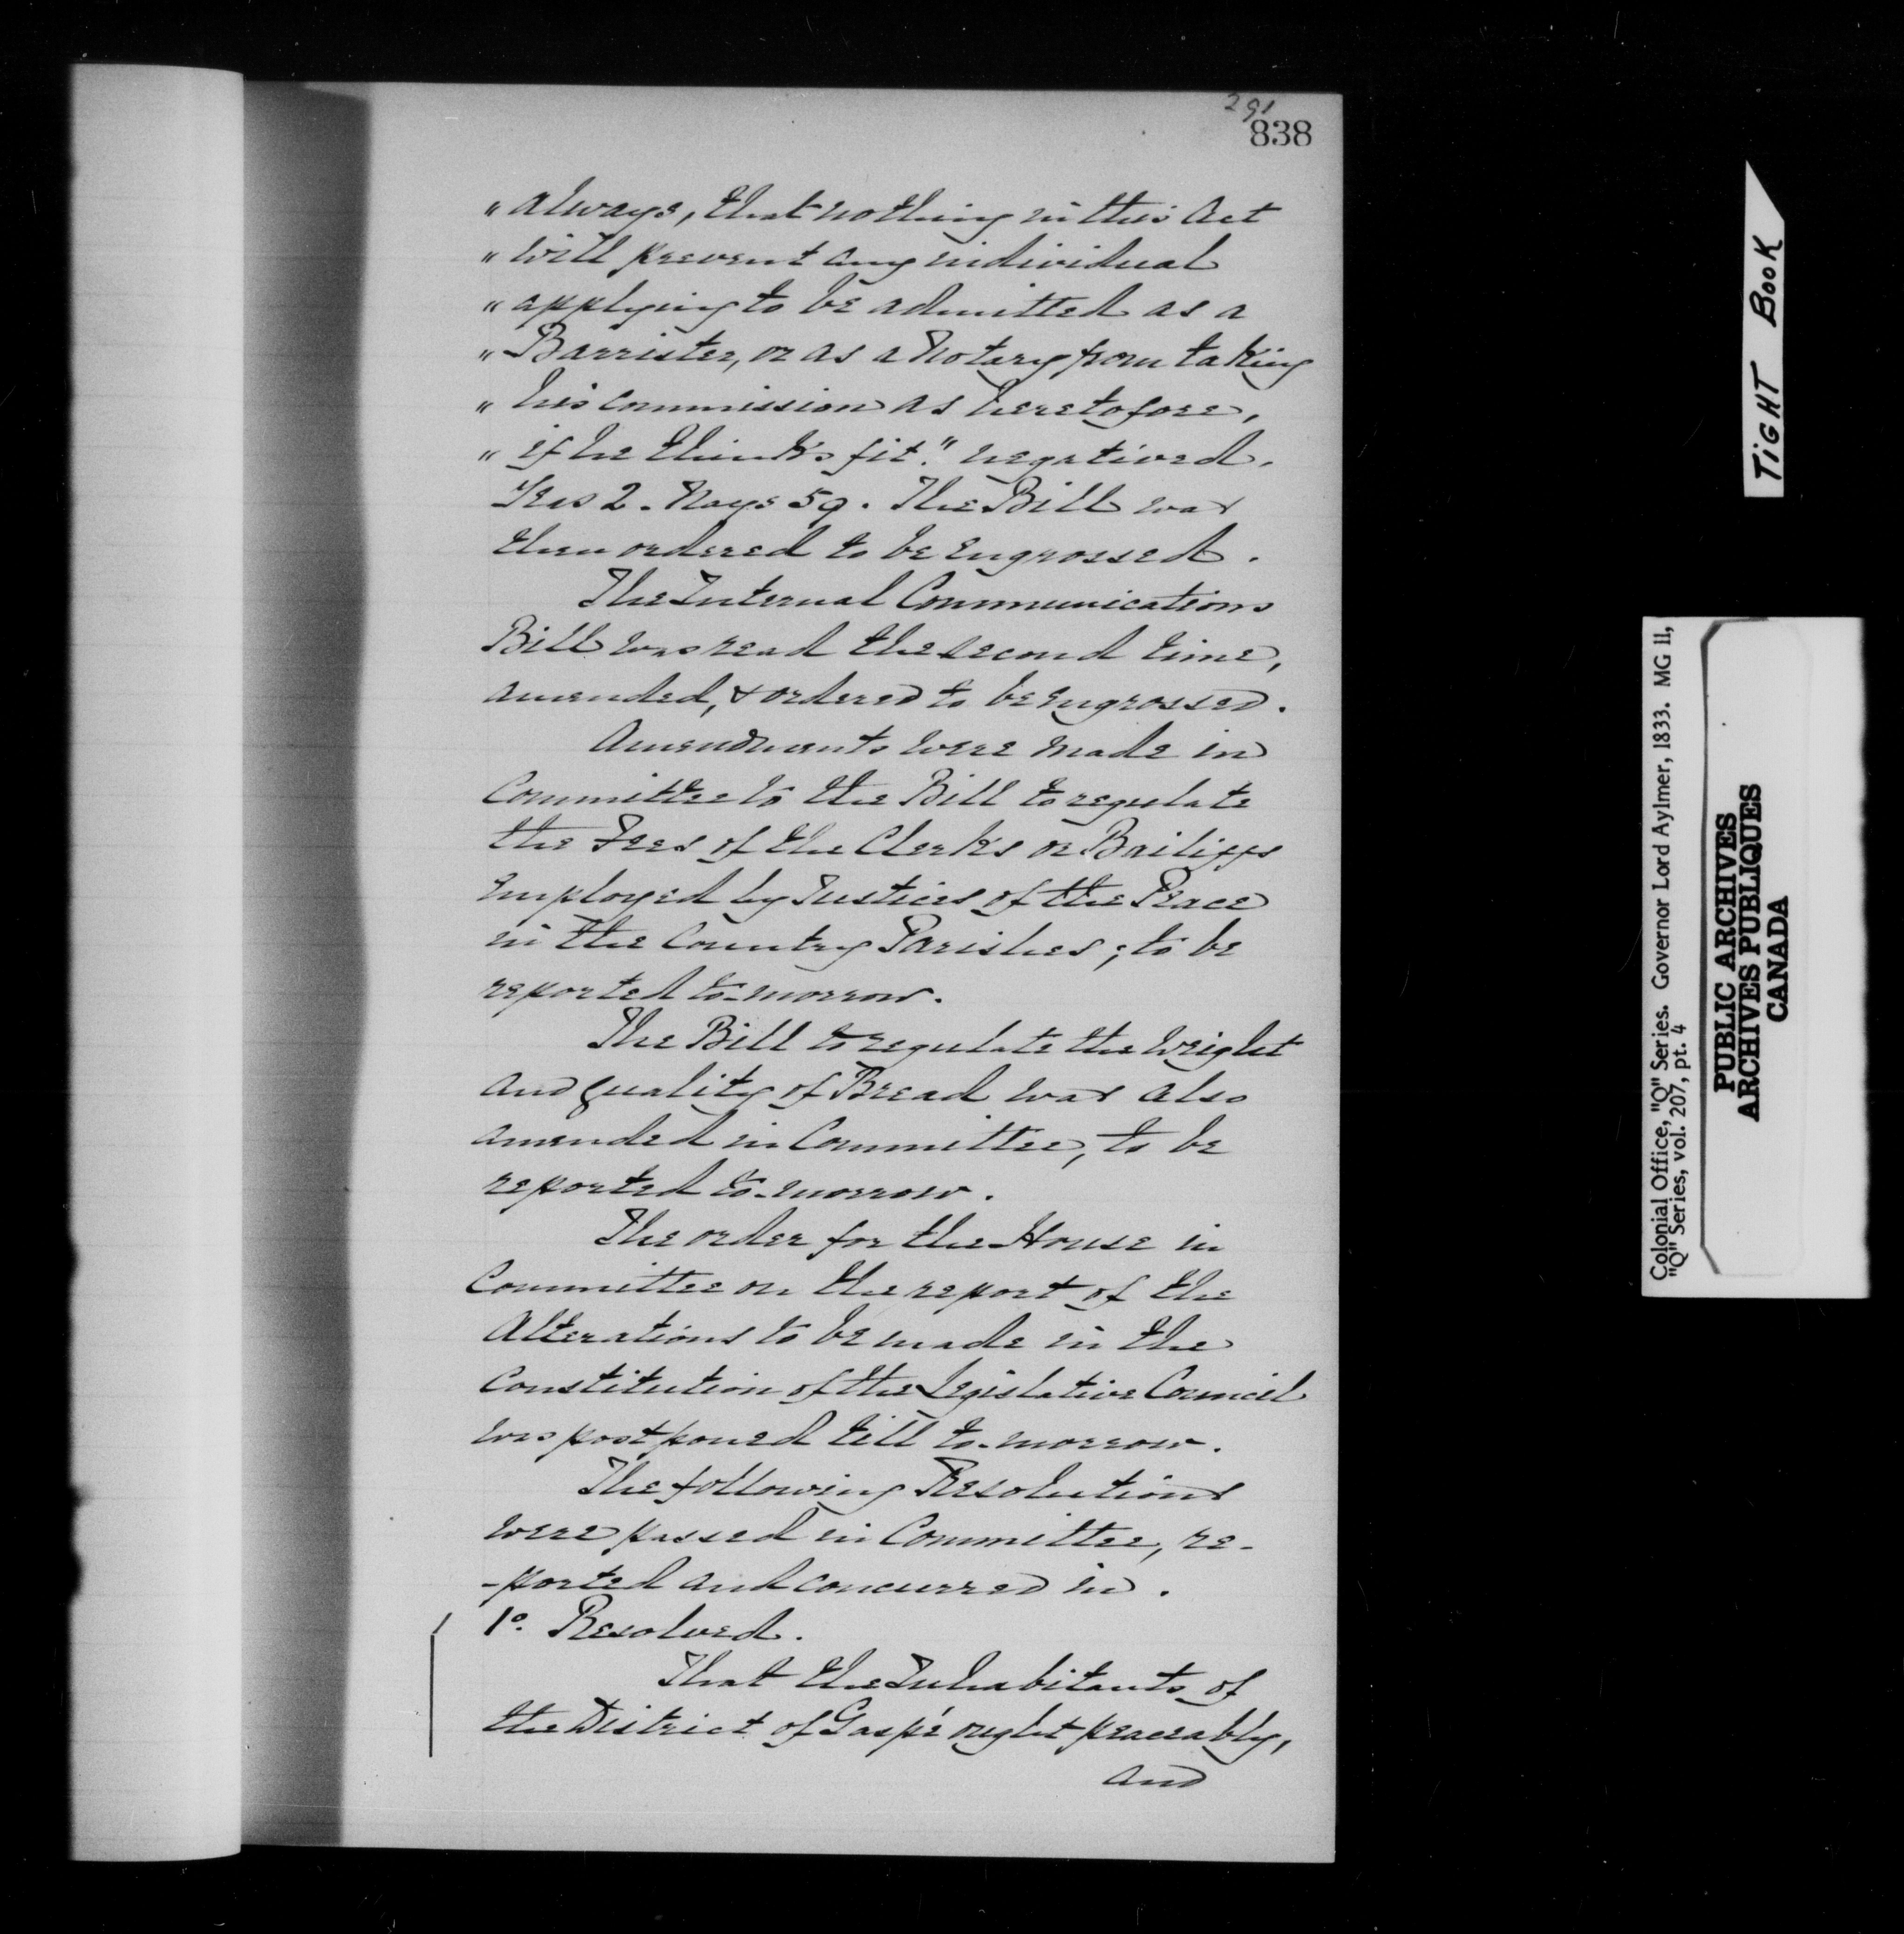 291
838
" always, that nothing in this Act
" will prevent any individual
" applying to be admitted as a
" Barrister, or as a Notary from taking
" his commission as heretofore,
" if he thinks fit." negatived.
Yeas 2. Nays 59. The Bill was
then ordered to be engrossed.
The Internal Communications
Bill was read the second time,
amended, & ordered to be engrossed.
Amendments were made in
Committee to the Bill to regulate
the Fees of the Clerks or Bailiffs
employed by Justices of the Peace
in the Country Parishes; to be
reported to-morrow.
The Bill to regulate the weight
and quality of Bread was also
amended in Committee, to be
reported to-morrow.
The order for the House in
Committee on the report of the
Alterations to be made in the
Constitution of the Legislative Council
was postponed till to-morrow.
The following Resolutions
were passed in Committee, re-
-ported and concurred in.
1º. Resolved.
That the Inhabitants of
the District of Gaspé might peaceably,
and
TIGHT BOOK
Colonial Office, "Q" Series. Governor Lord Aylmer, 1833. MG 11,
"Q" Series, vol. 207, pt. 4
PUBLIC ARCHIVES
ARCHIVES PUBLIQUES
CANADA